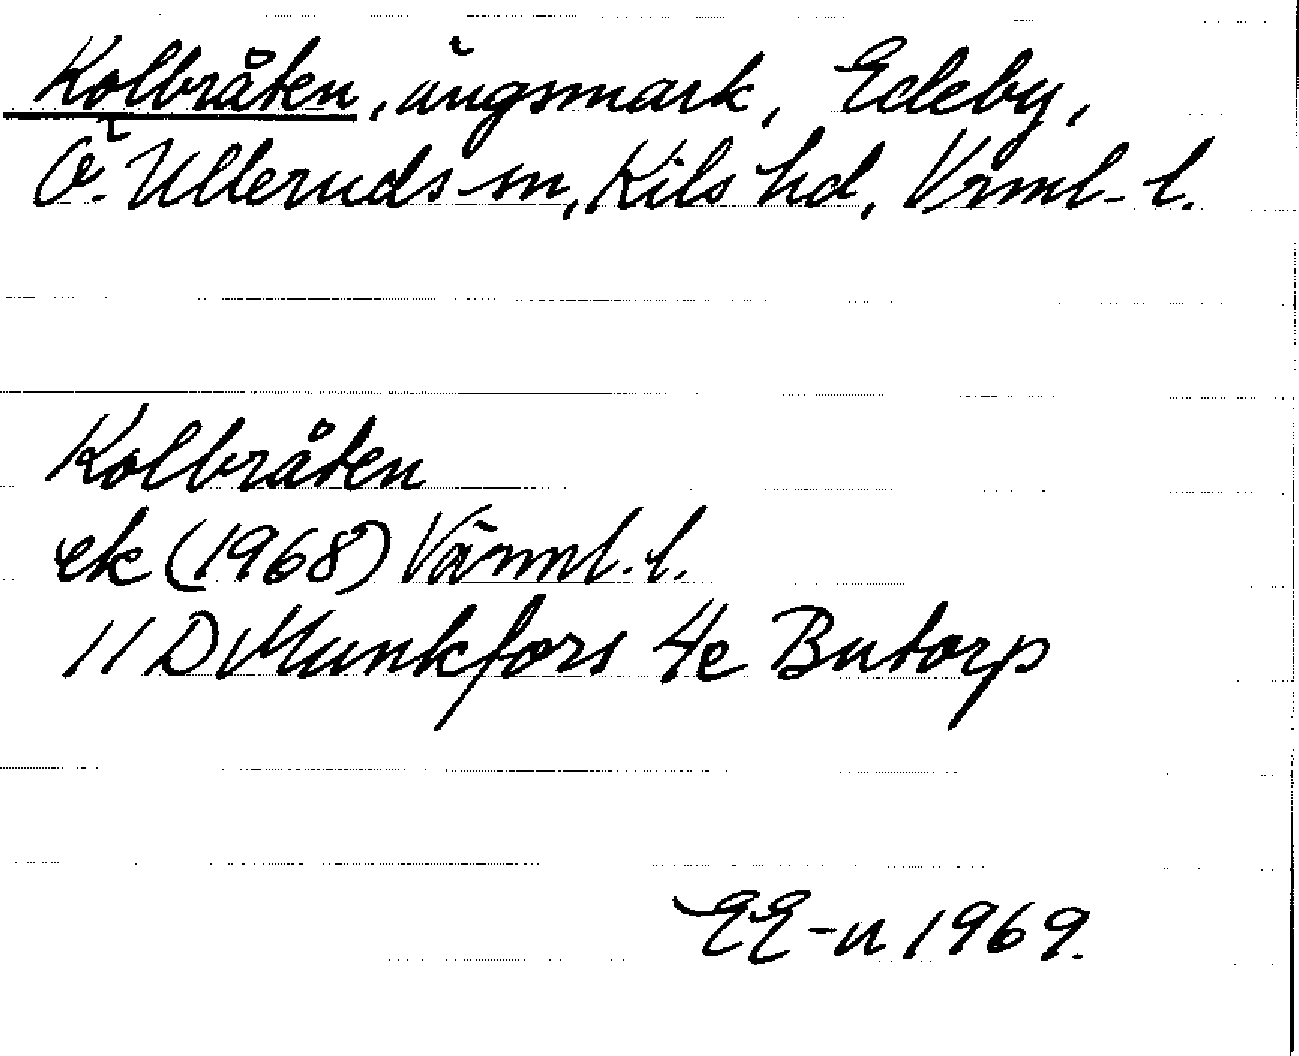 Kolbråten, ängsmark, Edeby,
Ö. Ulleruds sn, Kils hd, Vrml. l.
Kolbråten
ek (1968) Värml. l.
11 D Munkfors 4e Butorp
EE-n 1969.